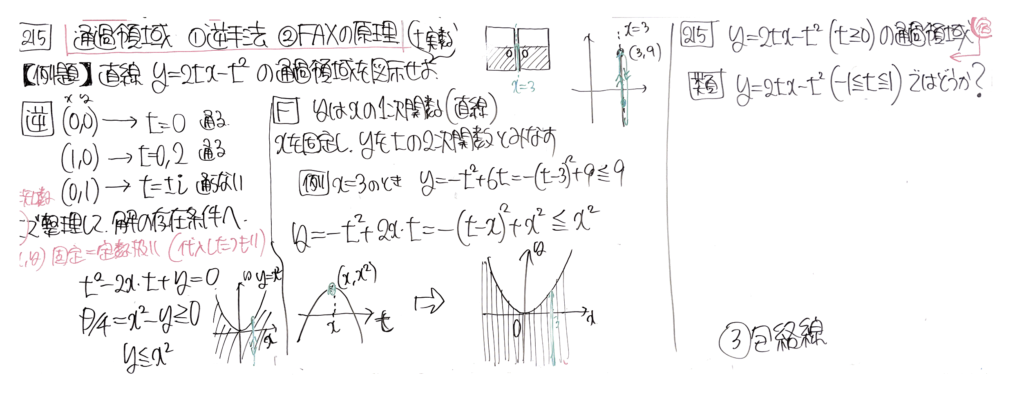 215 通過領域 ①逆手法 ②FAXの原理 (t実数)
【例題】直線 y=2tx-t² の通過領域を図示せよ
逆
x y
(0,0) → t=0 通る
(1,0) → t=0,2 通る
(0,1) → t=±i 通らない
で整理して、解の存在条件へ
固定=定数扱い (代入したつもり)
t²-2x・t+y=0
D/4=x²-y≧0
y≦x²
y=x²
x
F yはxの1次関数(直線)
xを固定し、yをtの2次関数とみなす
例 x=3のとき y=-t²+6t=-(t-3)²+9≦9
y=-t²+2x・t=-(t-x)²+x²≦x²
(x,x²)
x
t
⇨
y
0
3
x
0 0
x=3
x=3
(3,9)
215 y=2tx-t² (t≧0)の通過領域
類題 y=2tx-t² (-1≦t≦1)ではどうか?
③包絡線